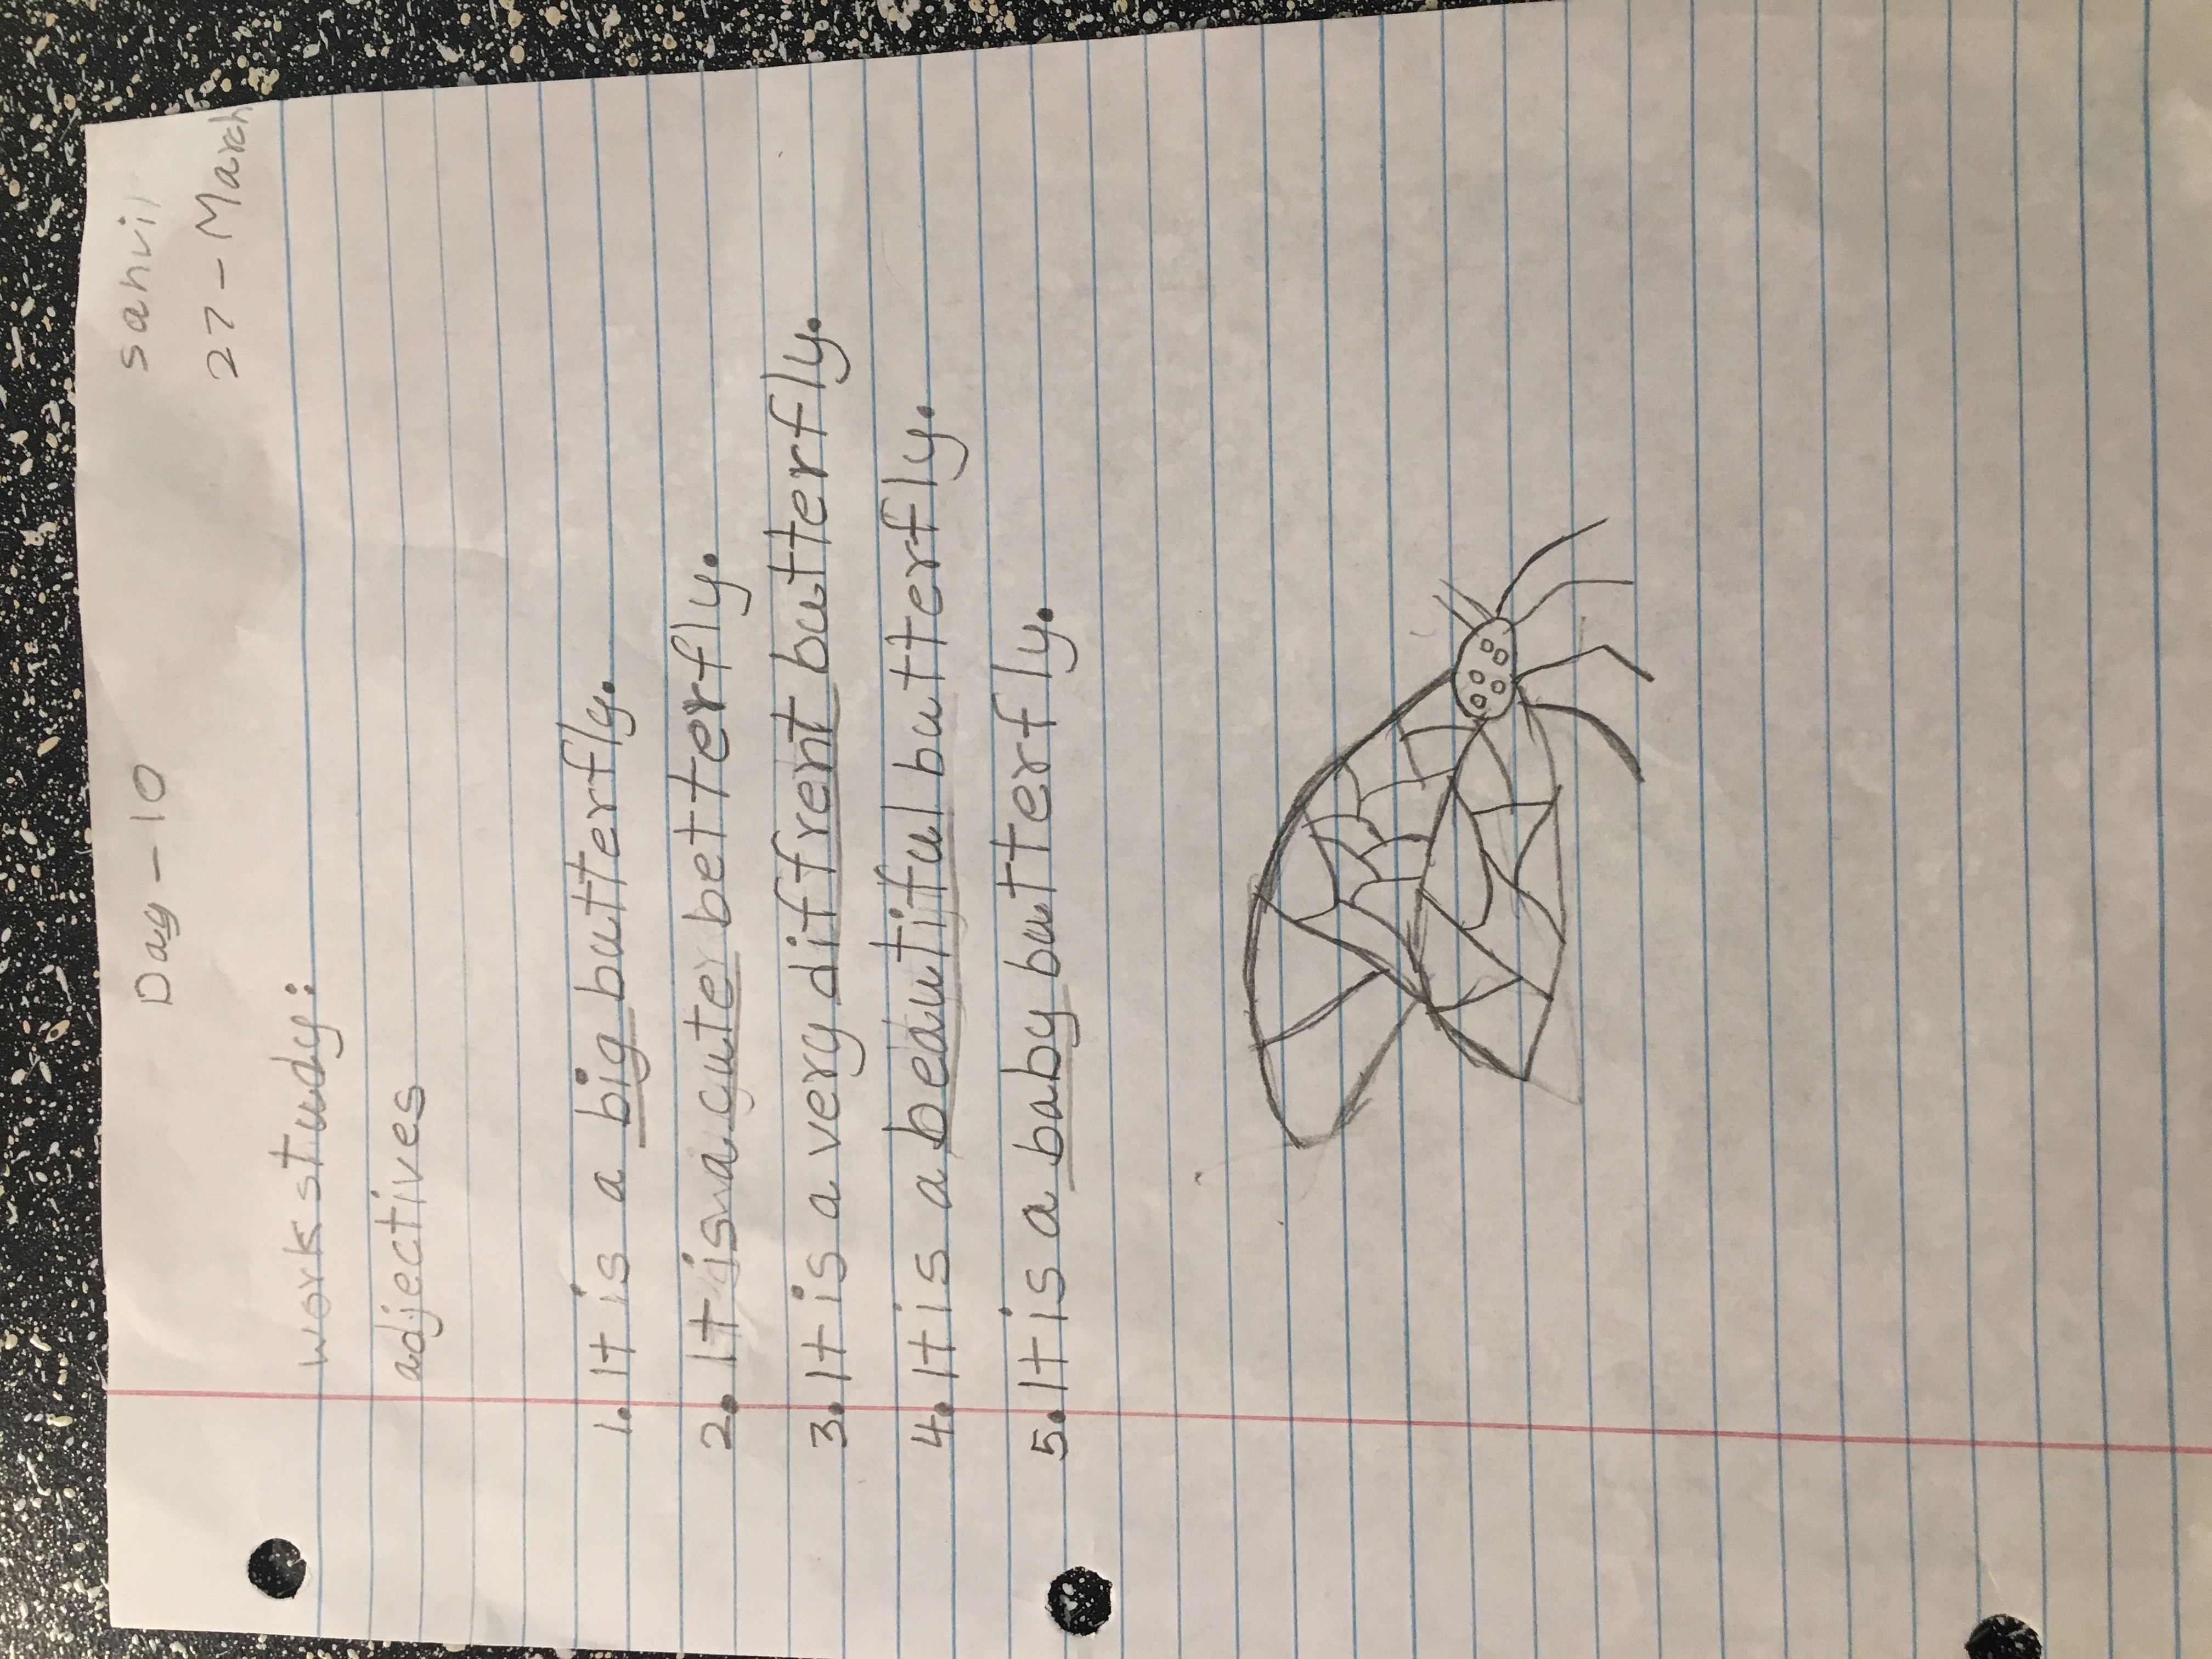 Day - 10
sanvi
27 - March
work study:
adjectives
1. It is a big butterfly.
2. It is a cute betterfly.
3. It is a very diffrent butterfly.
4. It is a beautiful butterfly.
5. It is a baby butterfly.